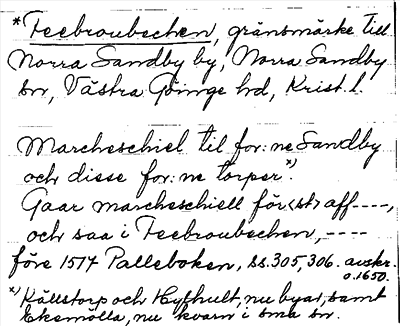 *Feebroubechen, gränsmärke till
Norra Sandby by, Norra Sandby
sn, Västra Göinge hd, Krist. l.
Marcheschiel til for:ne Sandby
och disse for:ne torper*).
Gaar marcheschiell för <st> aff ----,
och saa i Feebroubechen, ----
före 1517 Palleboken, ss. 305, 306. avskr.
o. 1650.
*) Källstorp och Hyfhult, nu byar, samt
Ekemölla, nu kvarn i sma sn.